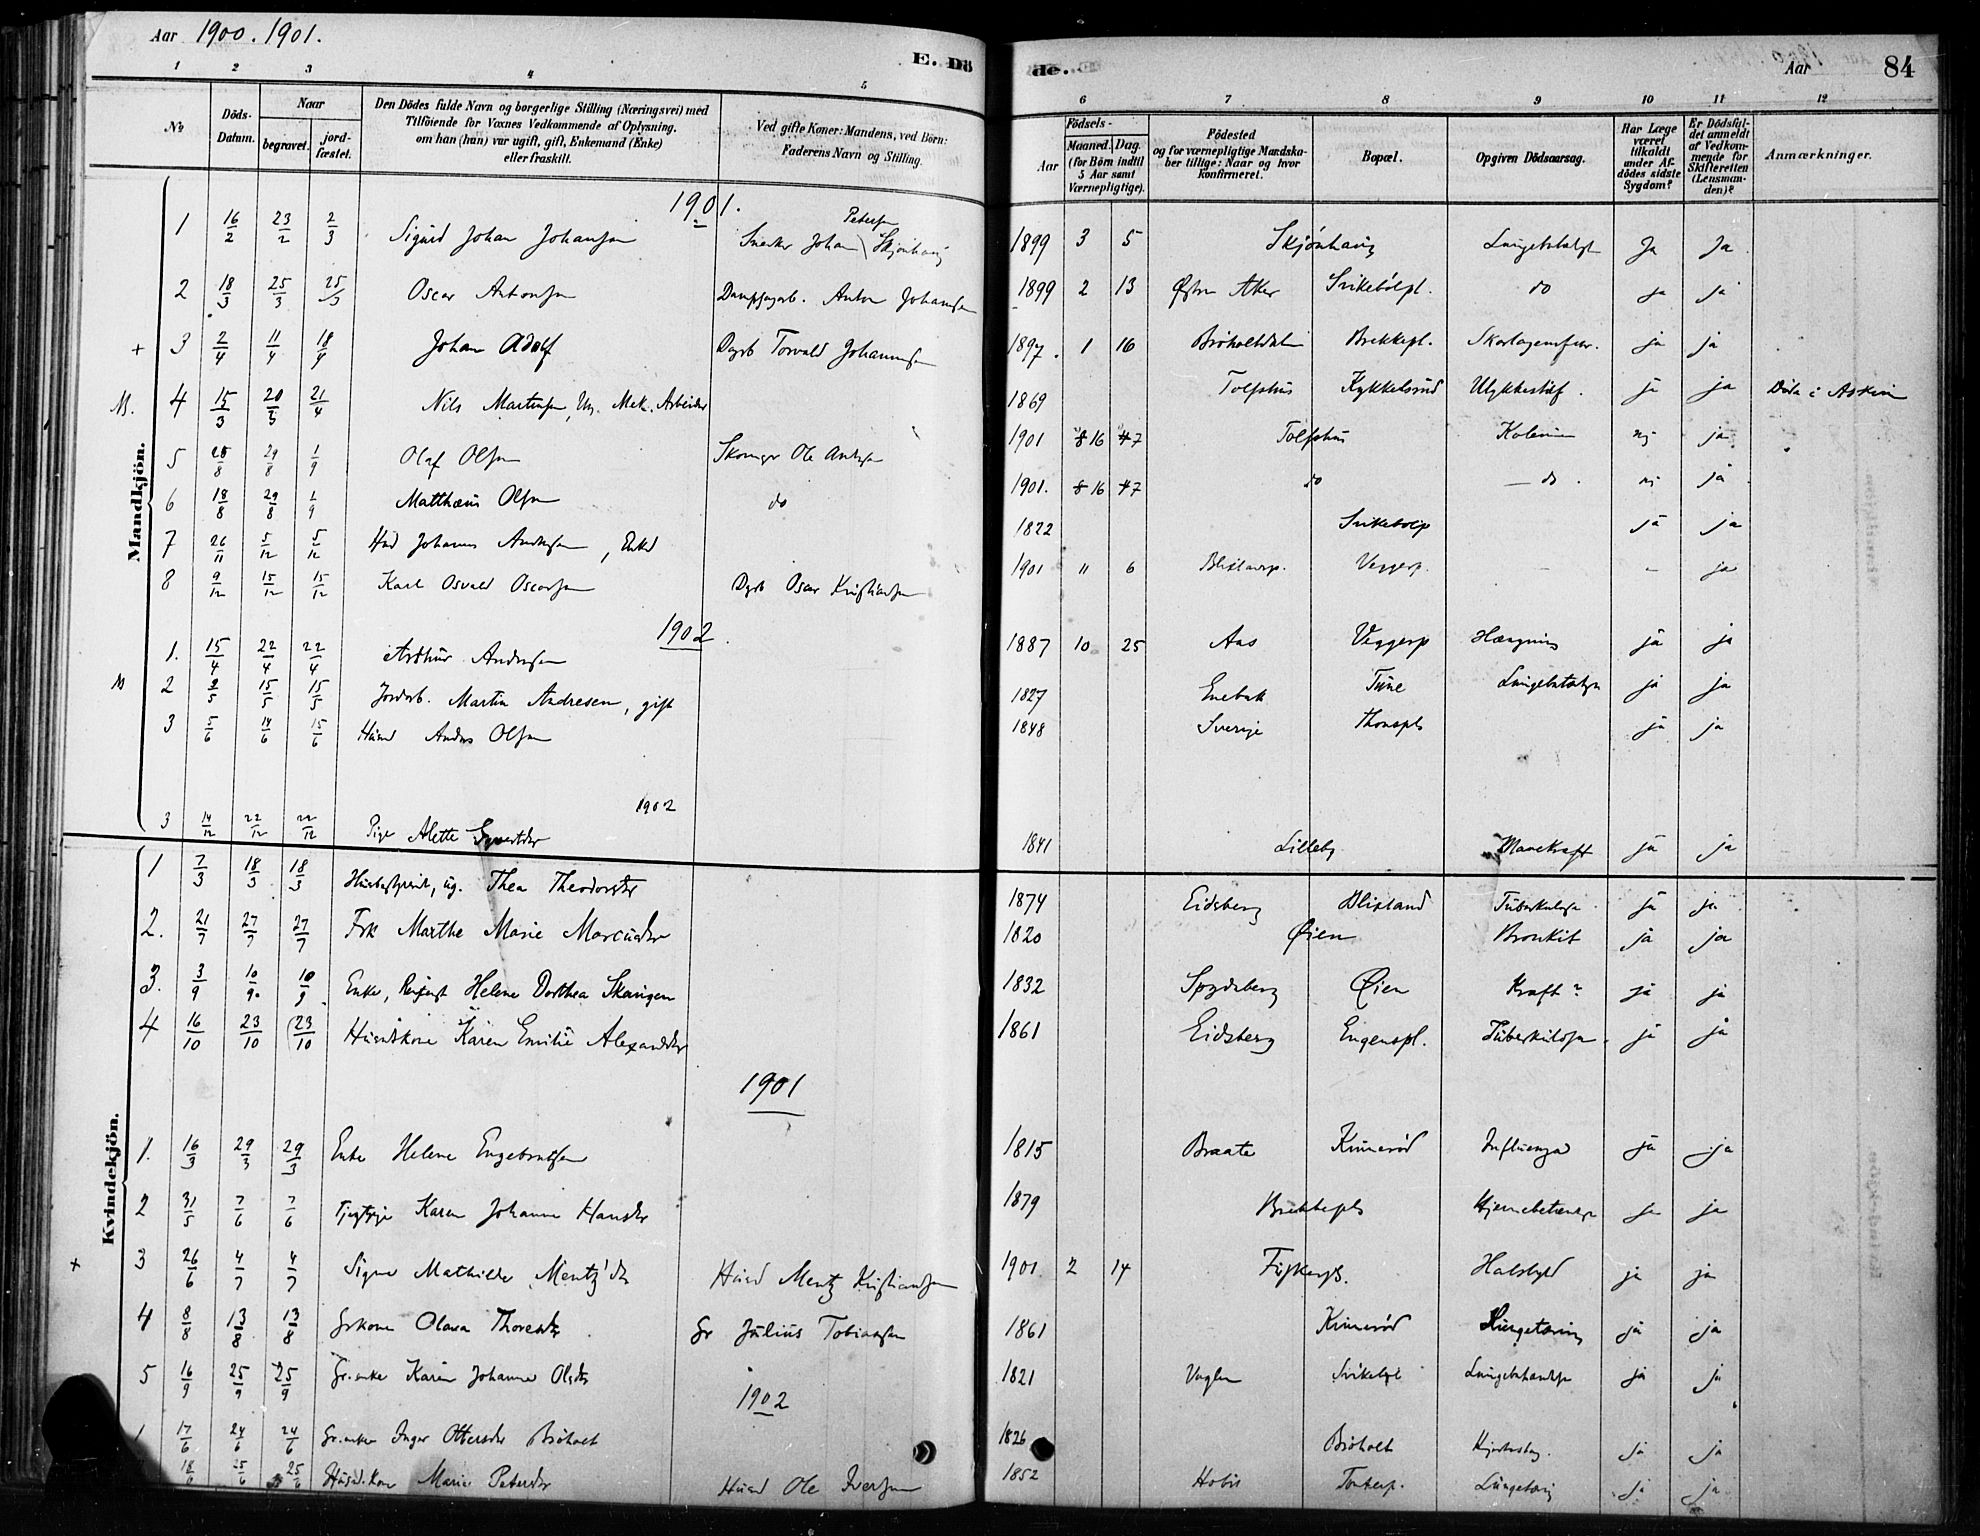 Aar 1900. 1901.
E. Dö
de.
Aar
84
1 2 3 4 5 6 7 8 9 10 11 12
No
Döds-Datum.
Naar
begravet.
jord-fæstet.
Den Dödes fulde Navn og borgerlige Stilling (Næringsvei) med
Tilföiende for Voxnes Vedkommende af Oplysning,
om han (hun) var ugift, gift, Enkemand (Enke)
eller fraskilt.
Ved gifte Koner: Mandens, ved Börn:
Faderens Navn og Stilling.
Födsels-
Aar
Maaned. Dag.
(for Börn indtil
5 Aar samt
Værnepligtige).
Födested
og for værnepligtige Mandska-
ber tillige: Naar og hvor
konfirmeret.
Bopæl.
Opgiven Dödsaarsag.
Har Læge
været
tilkaldt
under Af-
dödes sidste
Sygdom?
Er Dödsfal-
det anmeldt
af Vedkom-
mende for
Skifteretten
(Lensman-
den)?
Anmærkninger.
Mandkjön.
1901.
1 16/2 23/2 2/3 Sigurd Johan Johansen Snedker Johan Petersen Skjönhaug 1899 3 5 Skjönhaug Lungebetændelse Ja Ja
2 18/3 25/3 25/3 Oscar Antonsen Anton Johansen 1899 2 13 Østre Aker Svikebölpl. do ja ja
+ 3 2/4 11/4 18/4 Johan Adolf Dagb Torvald Johannesen 1897. 1 16 Bröholtdalen Brekkepl. Skarlagensfeber. ja ja
M. 4 15/3 20/3 21/4 Nils Martinsen, Ug. Mek. Arbeider 1869 Tolfshus Kykkelsrud Ulykkestilf. ja ja Döde i Askim
5 28/8 29/8 1/9 Olaf Olsen Skomager Ole Andersen 1901 8 16 7 Tolfshus Kolerine nej ja
6 18/8 29/8 1/9 Matthæus Olsen do 1901. 8 16 7 do do nej ja
7 26/11 5/12 5/12 Husmd Johannes Andersen, Enkd 1822 Svikebölp ja ja
8 9/12 15/12 15/12 Karl Osvald Oscarsen Dagb Oscar Kristiansen 1901 11 6 Blixlandsp. Veggerp. - - ja
1902.
1. 15/4 22/4 22/4 Arthur Andersen 1887 10 25 Aas Veggerp Hængning ja ja
M 2 2/5 15/5 15/5 Jordarb. Martin Andresen, gift 1827 Enebak Tune Lungebetændelse ja ja
3 5/6 14/6 15/6 Husmd Anders Olsen 1848 Sverige Thonspl ja ja
1902
3 14/12 22/12 22/12 Pige Alette Syvertsdtr 1841 Lilleby Mavekraft ja ja
Kvindekjön.
1 7/3 18/3 18/3 Husbestyrerinde, ug. Thea Theodorsdtr 1874 Eidsberg Blixland Tuberkulose ja ja
2. 21/7 27/7 27/7 Frk Marthe Marie Marcusdtr 1820 Øien Bronkit ja ja
3. 3/9 10/9. 10/9 Enke, Helene Dorthea Skaugen 1832 Spydeberg Øien Kraft? ja ja
4 16/10 23/10 23/10 Husmdskone Karen Emilie Alexandersdtr 1861 Eidsberg Engenspl. Tuberkulose ja ja
1901
1. 16/3 29/3 29/3 Enke Helene Engebretsen 1815 Braate Kinnerød Influenza ja ja
2 31/5 7/6 7/6 Tjenestepige Karen Johanne Hansdtr 1879 Brekkepl. Hjernebetændelse ja ja
+ 3 26/6 4/7 4/7 Signe Mathilde Mentz'dtr Husmd Mentz Kristiansen 1901 2 14 Halsbyld ja ja
4 8/8 13/8 13/8 Grkone Olava Thoresdtr Gr Julius Tobiassen 1861 Kinnerød Lungetæring ja ja
5 16/9 25/9 25/9 Gr.enke Karen Johanne Olsdtr 1821 Vaglen Svikeböl Lungebetændelse ja ja
1902
1 17/6 24/6 24/6 Gr.enke Inger Ottersdtr Bröholt 1826 Bröholt ja ja
18/6 25/6 25/6 Husmd.kone Marie Petersdtr Husmd Ole Iversen 1852 Hobøl Tonterp. Lungetæring ja ja